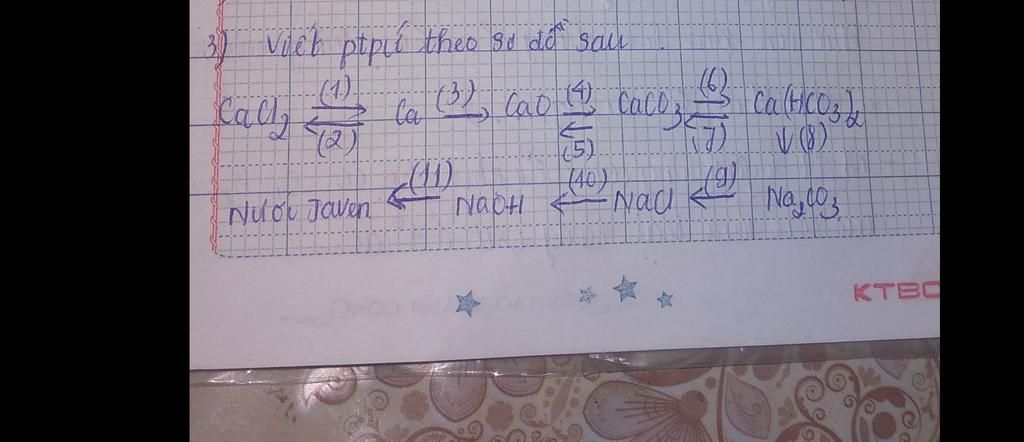 3) Viết ptpứ theo sơ đồ sau
CaCl₂ (1) ⇄ (2) Ca (3) → CaO (4) ⇄ (5) CaCO₃ (6) ⇄ (7) Ca(HCO₃)₂
↓ (8)
Nước Javen ← (11) NaOH ← (10) NaCl ← (9) Na₂CO₃
KTBC